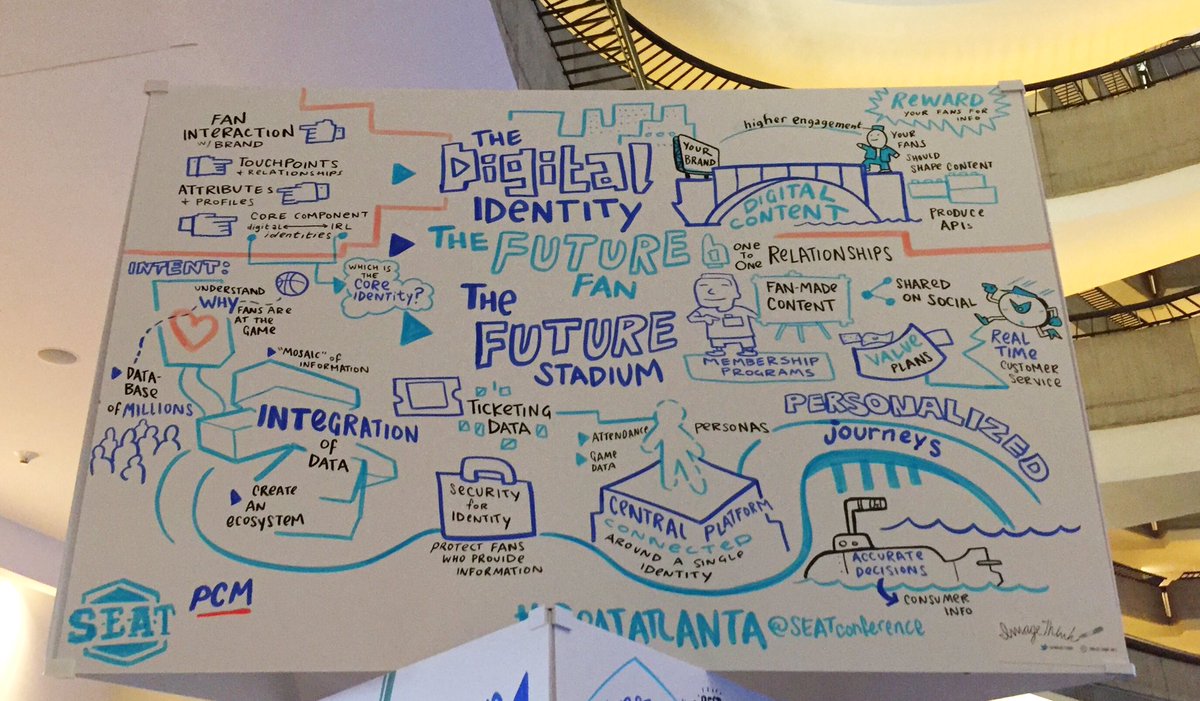 FAN
INTERACTION
w/ BRAND
TOUCHPOINTS
+ RELATIONSHIPS
ATTRIBUTES
+ PROFILES
CORE COMPONENT
digital IRL
identities
THE
Digital
IDENTITY
THE FUTURE
FAN
THE
FUTURE
STADIUM
YOUR
BRAND
higher engagement
DIGITAL
CONTENT
REWARD
YOUR FANS FOR
INFO
YOUR
FANS
SHOULD
SHAPE CONTENT
PRODUCE
APIs
ONE
TO
ONE RELATIONSHIPS
FAN-MADE
CONTENT
SHARED
ON SOCIAL
MEMBERSHIP
PROGRAMS
VALUE
PLANS
REAL
TIME
CUSTOMER
SERVICE
INTENT:
UNDERSTAND
WHY FANS ARE
AT THE
GAME
WHICH IS
THE
CORE
IDENTITY?
"MOSAIC" OF
INFORMATION
DATA-
BASE
OF MILLIONS
INTEGRATION
OF
DATA
CREATE
AN
ECOSYSTEM
TICKETING
DATA
SECURITY
for
IDENTITY
PROTECT FANS
WHO PROVIDE
INFORMATION
ATTENDANCE
GAME
DATA
PERSONAS
CENTRAL PLATFORM
CONNECTED
AROUND A SINGLE
IDENTITY
PERSONALIZED
journeys
ACCURATE
DECISIONS
CONSUMER
INFO
SEAT
PCM
ATLANTA @SEATconference
ImageThink